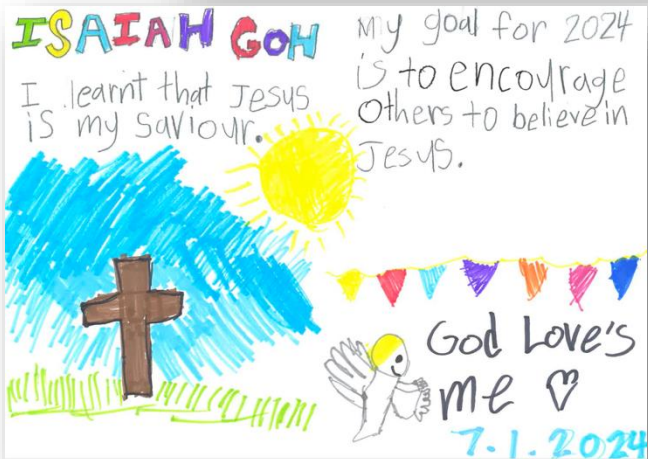 ISAIAH GOH
I learnt that Jesus
is my saviour.
My goal for 2024
is to encourage
Others to believe in
Jesus.
God Love's
me ♡
7.1.2024